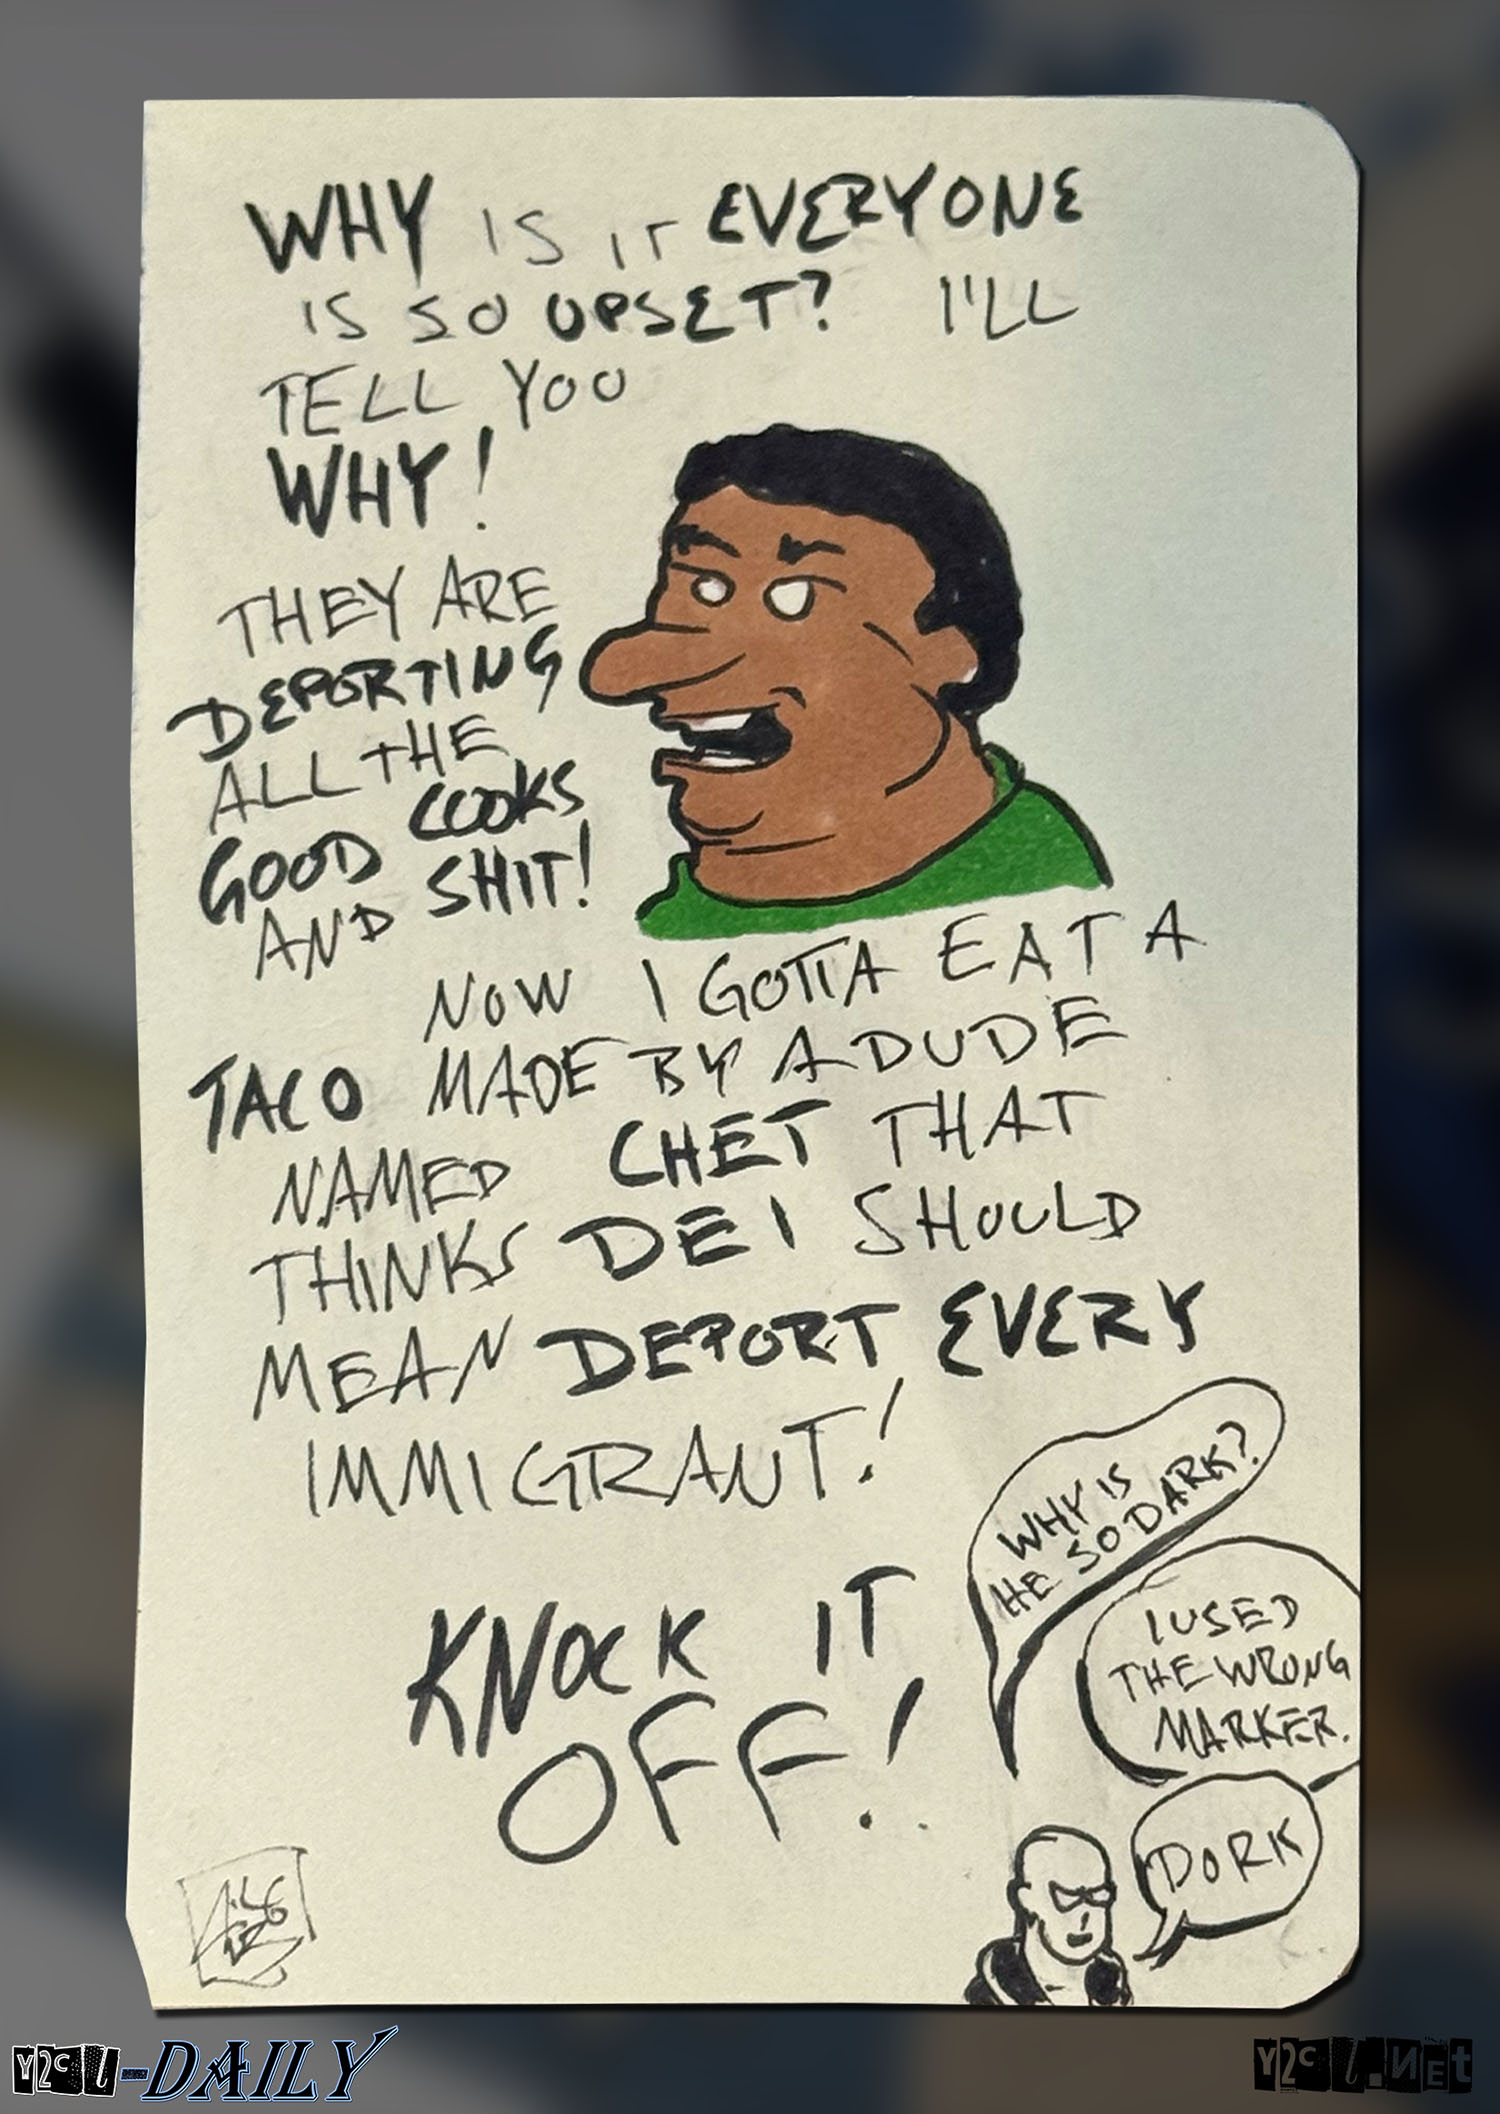 WHY IS IT EVERYONE
IS SO UPSET? I'LL
TELL YOU
WHY!
THEY ARE
DEPORTING
ALL THE
GOOD COOKS
AND SHIT!
NOW I GOTTA EAT A
TACO MADE BY A DUDE
NAMED CHET THAT
THINKS DEI SHOULD
MEAN DEPORT EVERY
IMMIGRANT!
KNOCK IT
OFF!
WHY IS
HE SO DARK?
I USED
THE WRONG
MARKER.
DORK
Y2CL-DAILY
Y2CL.NEt